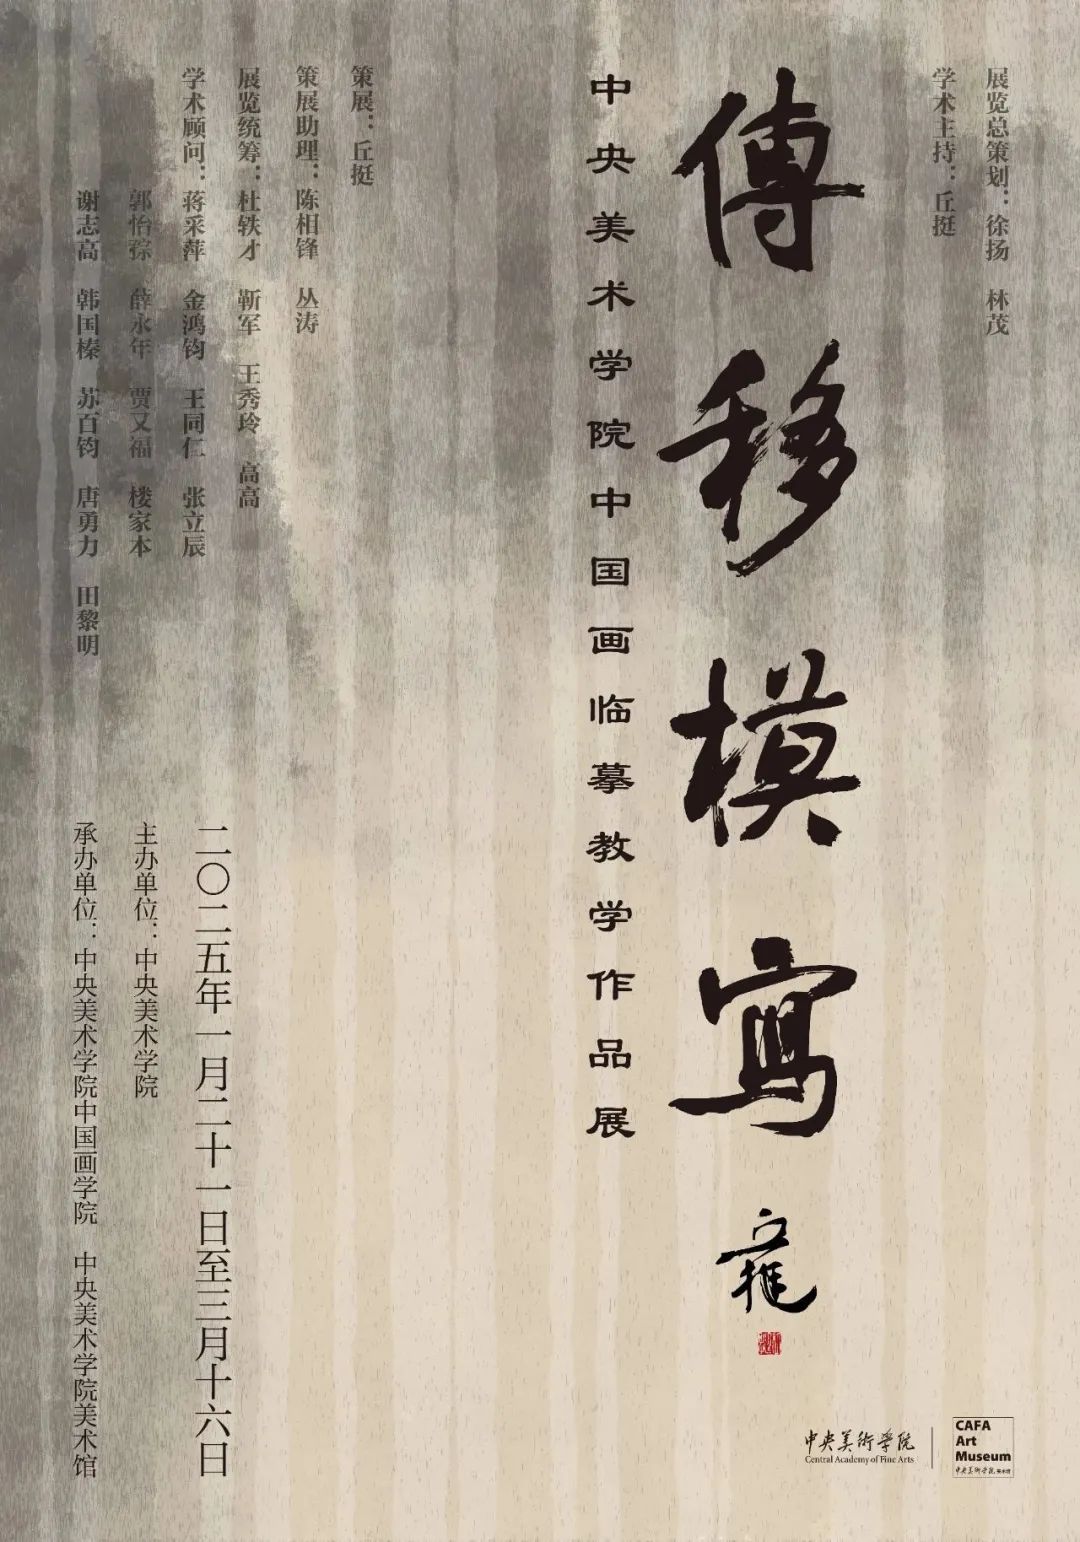 展览总策划：徐扬 林茂
学术主持：丘挺
傳移模寫
中央美术学院中国画临摹教学作品展
策展：丘挺
策展助理：陈相锋 丛涛
展览统筹：杜轶才 靳军 王秀玲 高高
学术顾问：蒋采萍 金鸿钧 王同仁 张立辰
郭怡孮 薛永年 贾又福 楼家本
谢志高 韩国榛 苏百钧 唐勇力 田黎明
二〇二五年一月二十一日至三月十六日
主办单位：中央美术学院
承办单位：中央美术学院中国画学院 中央美术学院美术馆
中央美術学院
Central Academy of Fine Arts
CAFA
Art
Museum
中央美術学院 美术馆